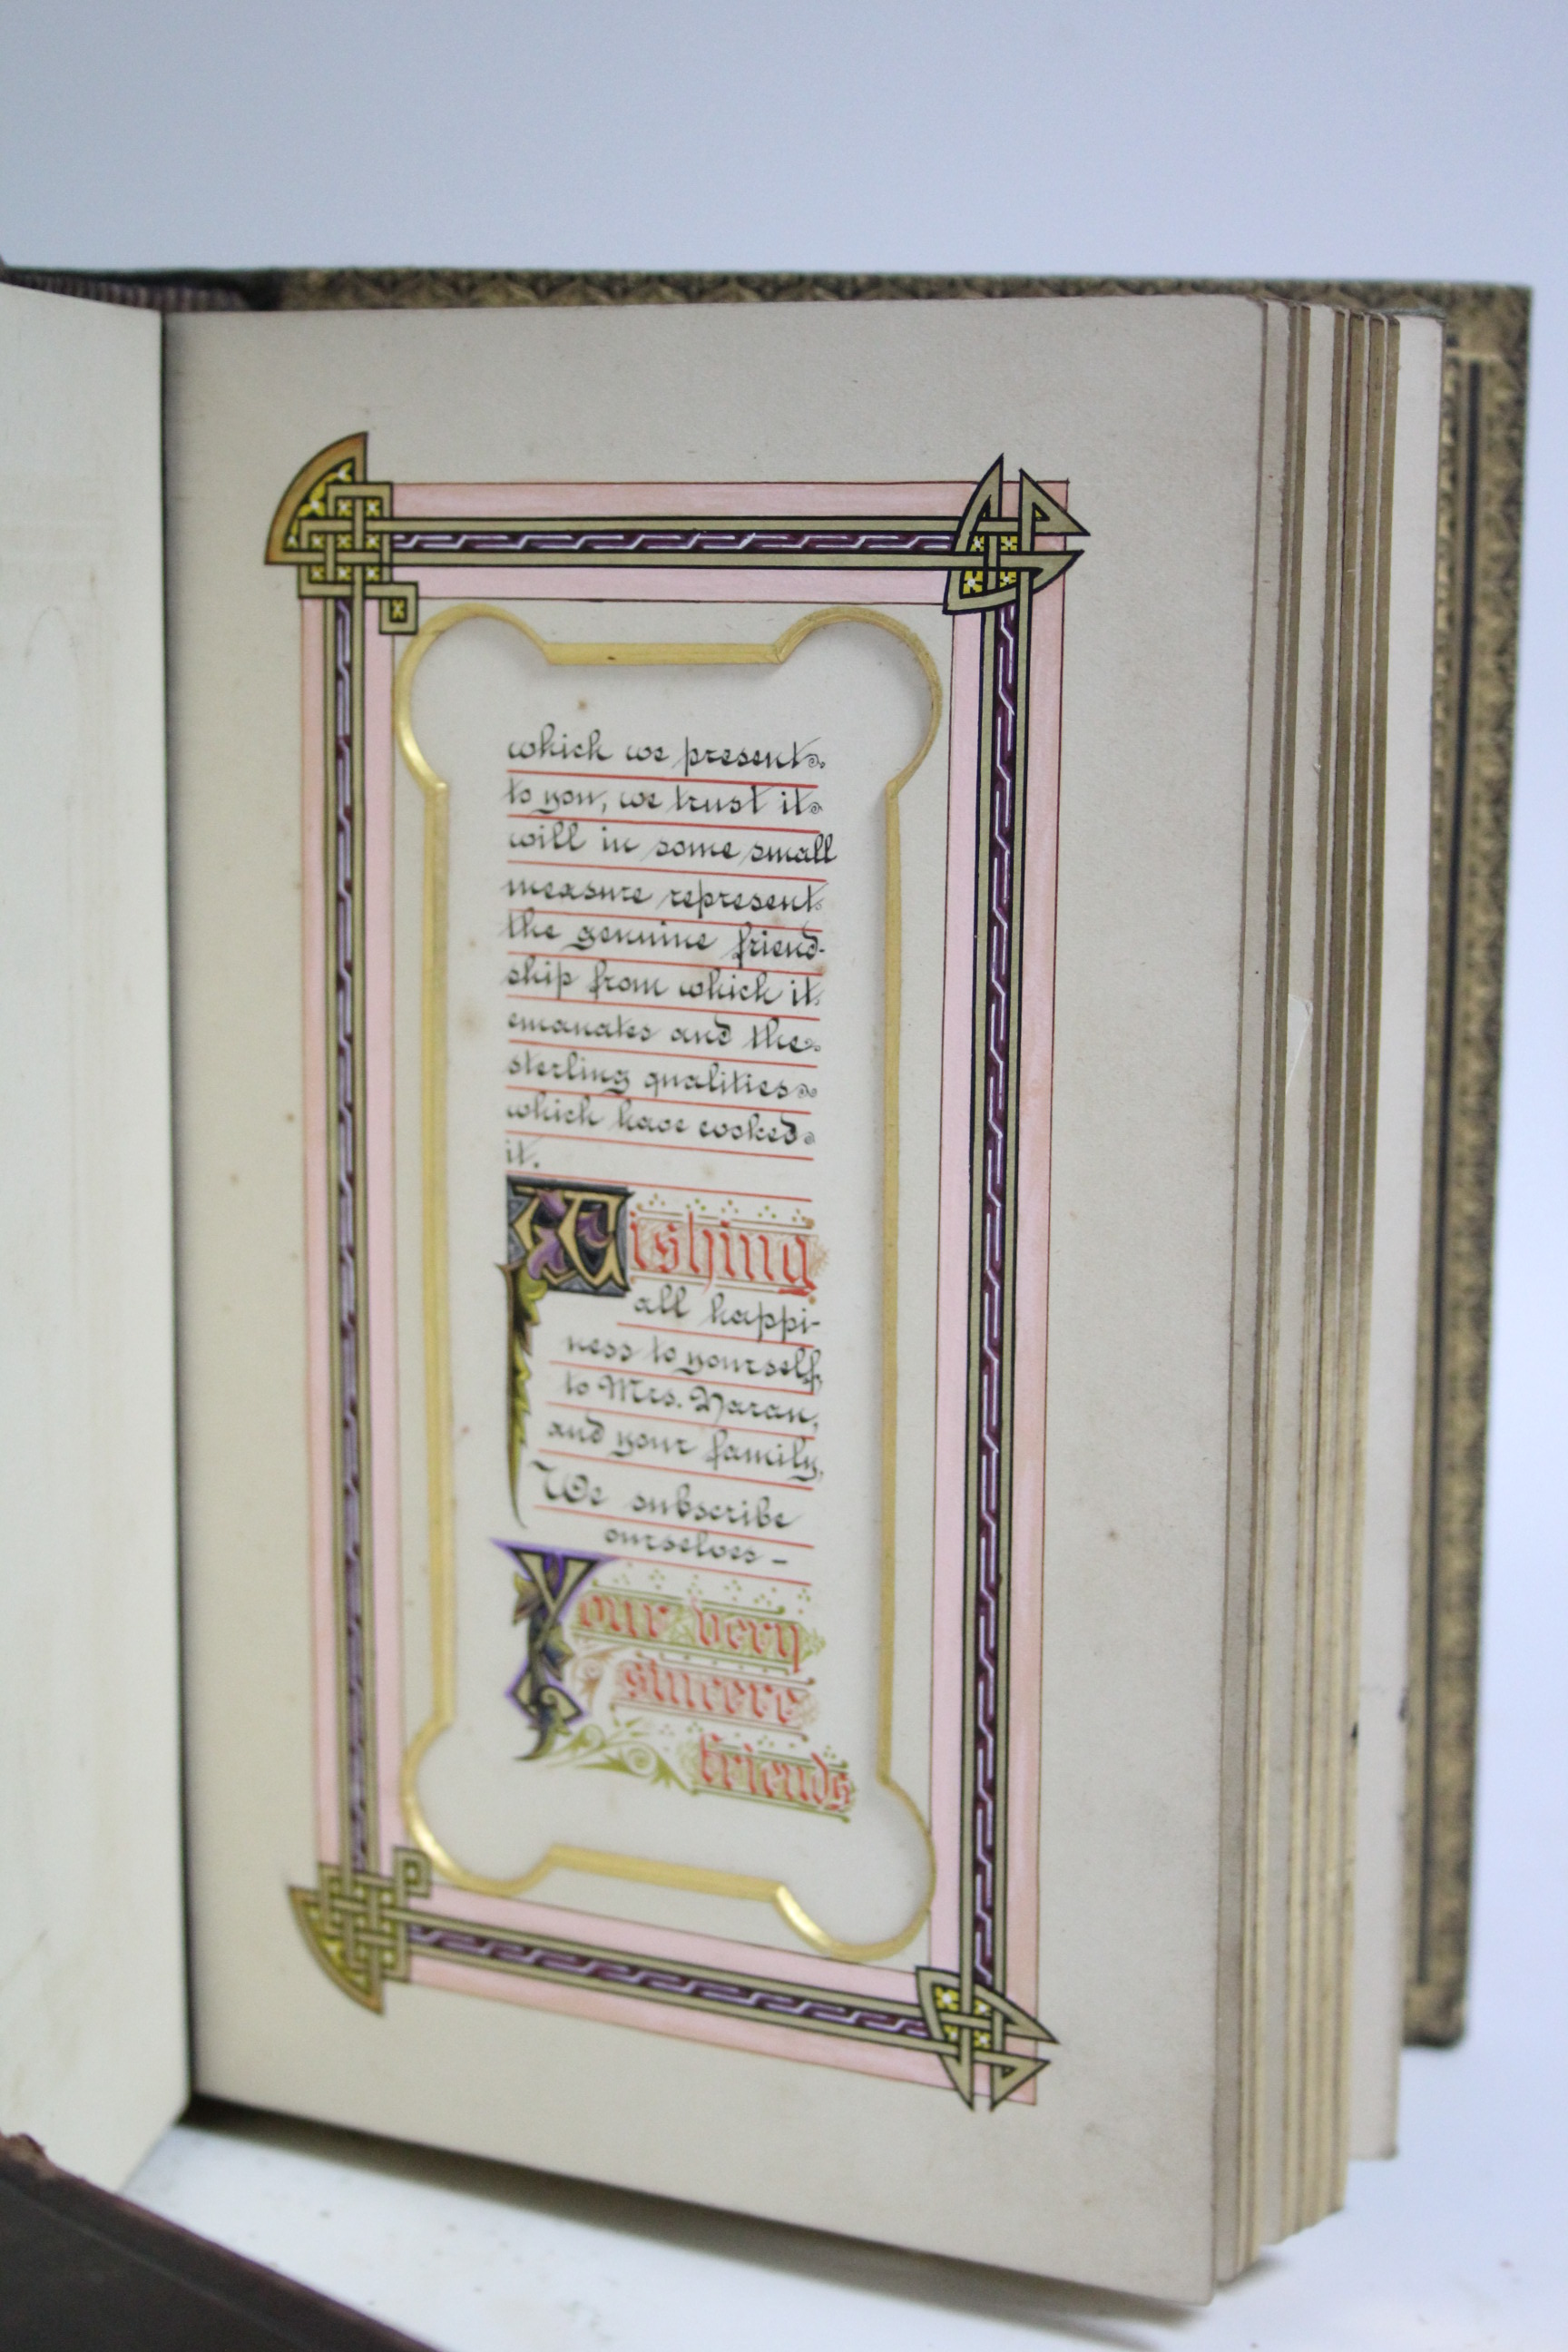 which we present
to you, we trust it
will in some small
measure represent
the genuine friend-
ship from which it
emanates and the
sterling qualities
which have evoked
it.
Wishing
all happi-
ness to yourself,
to Mrs.
and your family,
We subscribe
ourselves –
Your very
sincere
friends